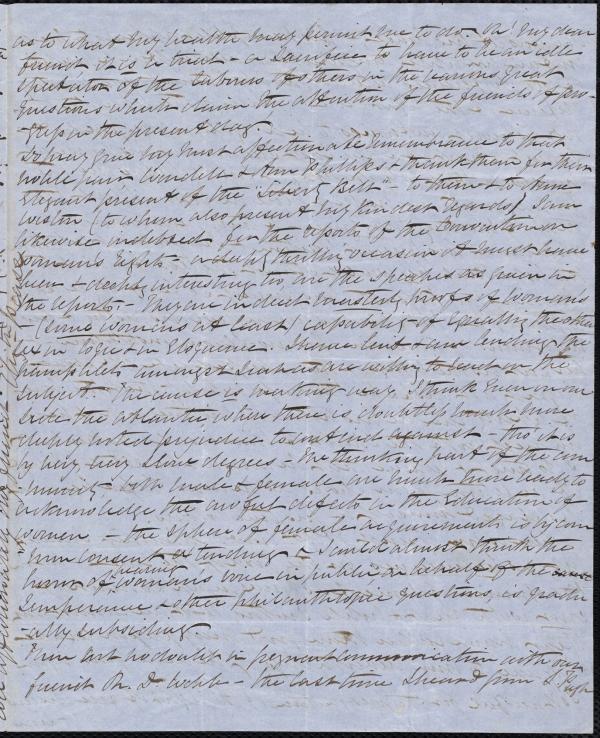 as to what my health may permit me to do. Oh! my dear
friend it is a trial - a sacrifice to have to be an idle
spectator of the labours of others in the various great
questions which claim the attention of the friends of pro-
-gress in the present day.
Do pray give my most affectionate remembrance to that
noble pair Wendell & Ann Phillips & thank them for their
elegant present of the "Liberty Bell" - to them & to Anne
Weston (to whom also present my kindest regards) I am
likewise indebted for the reports of the Convention on
Woman's Rights - a deeply thrilling occasion it must have
been & deeply interesting too are the speeches as given in
the reports. - They are indeed proofs of woman's
- (some womans at least) capability of equalling the other
sex in logic & in eloquence. I have lent & am lending the
pamphlets amongst such as are willing to read on the
subject. The cause is making way I think even on our
side the Atlantic, where there is doubtless much more
deeply rooted prejudice to contend against tho' it is
by very very slow degrees - The thinking part of the com
munity - both male & female are much more ready to
acknowledge the awful defects in the Education of
women - the sphere of female acquirements is by com
mon consent extending & I could almost think the
horror of hearing woman's voice in public on behalf of the cause
Temperance & other Philanthropic questions, is gradu
-ally subsiding.
Thou art no doubt in frequent communication with our
friend R. D. Webb - the last time I heard from S Pugh